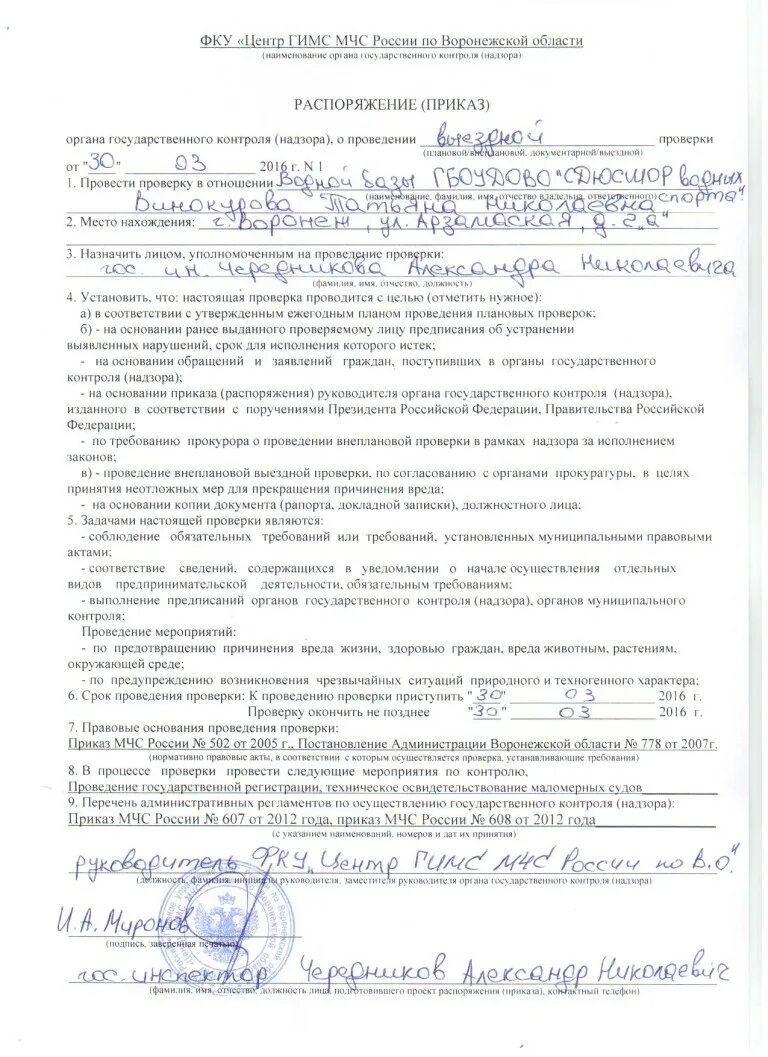 ФКУ «Центр ГИМС МЧС России по Воронежской области
(наименование органа государственного контроля (надзора)
РАСПОРЯЖЕНИЕ (ПРИКАЗ)
органа государственного контроля (надзора), о проведении выездной проверки
(плановой/внеплановой, документарной/выездной)
от "30" 03 2016 г. N 1
1. Провести проверку в отношении Водной базы ГБОУДОВО "СДЮСШОР водных
(наименование, фамилия, имя, отчество владельца, ответственного) спорта"
Винокурова Татьяна Николаевна
2. Место нахождения: г. Воронеж, ул. Арзамаская, д. 2 "а"
3. Назначить лицом, уполномоченным на проведение проверки:
гос. ин. Чередникова Александра Николаевича
(фамилия, имя, отчество, должность)
4. Установить, что: настоящая проверка проводится с целью (отметить нужное):
а) в соответствии с утвержденным ежегодным планом проведения плановых проверок;
б) - на основании ранее выданного проверяемому лицу предписания об устранении
выявленных нарушений, срок для исполнения которого истек;
- на основании обращений и заявлений граждан, поступивших в органы государственного
контроля (надзора);
- на основании приказа (распоряжения) руководителя органа государственного контроля (надзора),
изданного в соответствии с поручениями Президента Российской Федерации, Правительства Российской
Федерации;
- по требованию прокурора о проведении внеплановой проверки в рамках надзора за исполнением
законов;
в) - проведение внеплановой выездной проверки, по согласованию с органами прокуратуры, в целях
принятия неотложных мер для прекращения причинения вреда;
- на основании копии документа (рапорта, докладной записки), должностного лица;
5. Задачами настоящей проверки являются:
- соблюдение обязательных требований или требований, установленных муниципальными правовыми
актами;
- соответствие сведений, содержащихся в уведомлении о начале осуществления отдельных
видов предпринимательской деятельности, обязательным требованиям;
- выполнение предписаний органов государственного контроля (надзора), органов муниципального
контроля;
Проведение мероприятий:
- по предотвращению причинения вреда жизни, здоровью граждан, вреда животным, растениям,
окружающей среде;
- по предупреждению возникновения чрезвычайных ситуаций природного и техногенного характера;
6. Срок проведения проверки: К проведению проверки приступить "30" 03 2016 г.
Проверку окончить не позднее "30" 03 2016 г.
7. Правовые основания проведения проверки:
Приказ МЧС России № 502 от 2005 г., Постановление Администрации Воронежской области № 778 от 2007г.
(нормативно правовые акты, в соответствии с которым осуществляется проверка, устанавливающие требования)
8. В процессе проверки провести следующие мероприятия по контролю,
Проведение государственной регистрации, техническое освидетельствование маломерных судов
9. Перечень административных регламентов по осуществлению государственного контроля (надзора):
Приказ МЧС России № 607 от 2012 года, приказ МЧС России № 608 от 2012 года
(с указанием наименований, номеров и дат их принятия)
руководитель ФКУ "Центр ГИМС МЧС России по В.О."
(должность, фамилия, инициалы руководителя, заместителя руководителя органа государственного контроля (надзора)
И.А. Миронов
(подпись, заверенная печатью)
гос. инспектор Чередников Александр Николаевич
(фамилия, имя, отчество, должность лица, подготовившего проект распоряжения (приказа), контактный телефон)